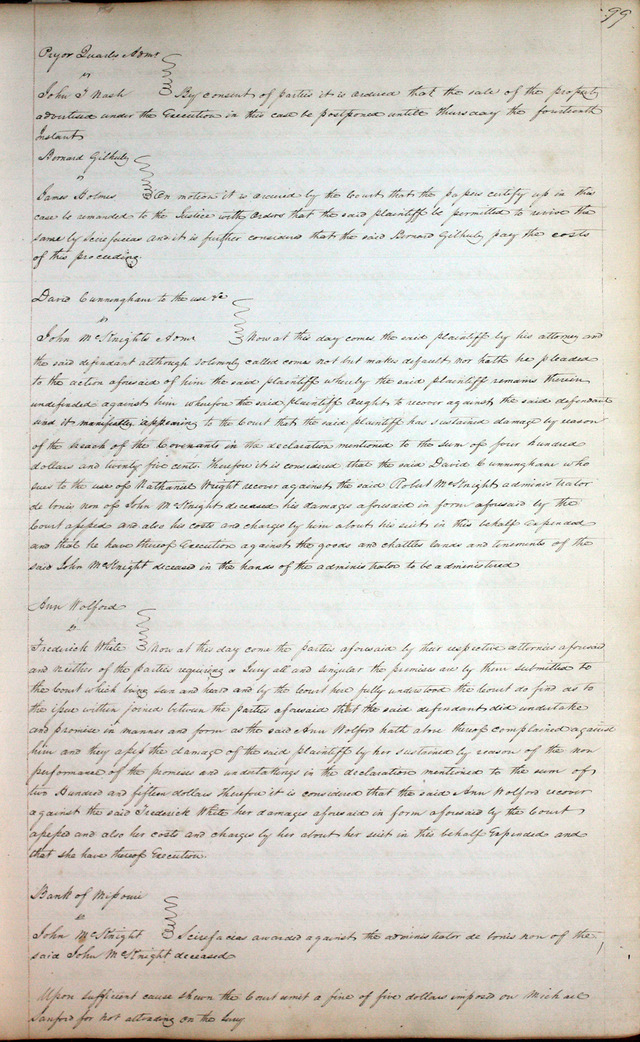 99
Pryor Quarles Admr
vs
John T Nash By consent of parties it is ordered that the sale of the property
advertised under the Execution in this case be postponed untill Thursday the fourteenth
Instant
Bernard Gilhuly
vs
James Holmes On motion it is ordered by the Court that the papers certify up in this
case be remanded to the Justice with orders that the said plaintiff be permitted to revive the
same by Scirefacias and it is further considered that the said Bernard Gilhuly pay the costs
of this proceeding.
David Cunningham to the use &c
vs
John McKnights Admr Now at this day comes the said plaintiff by his attorney and
the said defendant although solemnly called comes not but makes default nor hath he pleaded
to the action aforesaid of him the said plaintiff whereby the said plaintiff remains therein
undefended against him wherefore the said plaintiff ought to recover against the said defendant
and it manifestly appearing to the Court that the said plaintiff has sustained damage by reason
of the breach of the Covenants in the declaration mentioned to the sum of four hundred
dollars and twenty five cents Therefore it is considered that the said David Cunningham who
sues to the use of Nathaniel Wright recover against the said Robert McKnight administrator
de bonis non of John McKnight deceased his damages aforesaid in form aforesaid by the
Court assessed and also his costs and charges by him about his suit in this behalf Expended
and that he have thereof Execution against the goods and chattles lands and tenements of the
said John McKnight deceased in the hands of the administrator to be administered
Ann Wolford
vs
Frederick White Now at this day come the parties aforesaid by their respective attornies aforesaid
and neither of the parties requiring a Jury all and singular the premises are by them submitted to
the Court which being seen and heard and by the Court here fully understood the Court do find as to
the issue within joined between the parties aforesaid that the said defendant did undertake
and promise in manner and form as the said Ann Wolford hath above thereof complained against
him and they assess the damage of the said plaintiff by her sustained by reason of the non
performance of the promises and undertakings in the declaration mentioned to the sum of
two Hundred and fifteen dollars Therefore it is considered that the said Ann Wolford recover
against the said Frederick White her damages aforesaid in form aforesaid by the Court
assessed and also her costs and charges by her about her suit in this behalf Expended and
that she have thereof Execution.
Bank of Missouri
vs
John McKnight Scirefacias awarded against the administrator de bonis non of the
said John McKnight deceased
Upon sufficient cause shewn the Court remit a fine of five dollars imposed on Michael
Sanford for not attending on the Jury